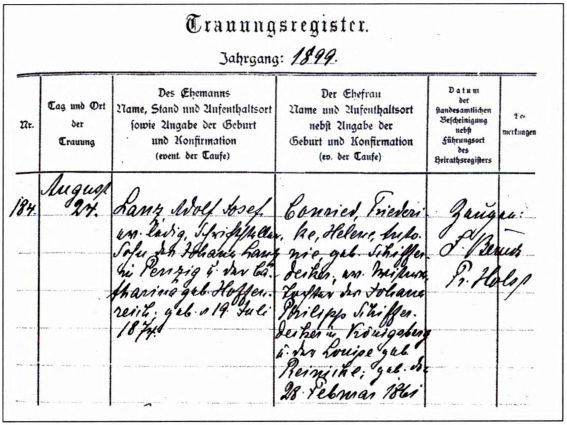 Trauungsregister.
Jahrgang: 1899.
Nr.
Tag und Ort
der
Trauung
Des Ehemanns
Name, Stand und Aufenthaltsort
sowie Angabe der Geburt
und Konfirmation
(event. der Taufe)
Der Ehefrau
Name und Aufenthaltsort
nebst Angabe der
Geburt und Konfirmation
(ev. der Taufe)
Datum
der
standesamtlichen
Bescheinigung
nebst
Führungsort
des
Heirathsregisters
Be-
merkungen
184.
August
24.
Lanz Adolf Josef
ev. ledig, Schriftsteller
Sohn des Johann Lanz
in Penzig u. der Ca-
tharina geb. Hoffen-
reich, geb. 19. Juli
1874.
Conried, Friederi-
ke, Helene, Anto-
nie geb. Schiffer-
decker, ev. Wittwe
Tochter des Johann
Philipps Schiffer-
decker in Königsberg
u. der Louise geb.
Reinicke; geb. den
28. Februar 1861
Zeugen:
F.
Fr. Holst